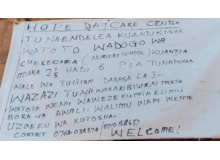 HOPE DAYCARE CENTER
TUNAENDELEA KUANDIKISHA
WATOTO WADOGO WA
CHEKECHEA (NURSERY SCHOOL) KUANZIA
MIAKA 2½ HADI 6. PIA TUNAPOKEA
WALE WA TUITION DARASA LA
WAZAZI TUNAWAKARIBISHA
WATOTO WENU WAWEZE KUPATA ELIMU
BORA NA WALIMU WAPO WENYE
UZOEFU WA KUTOSHA
CONTACT
WELCOME!